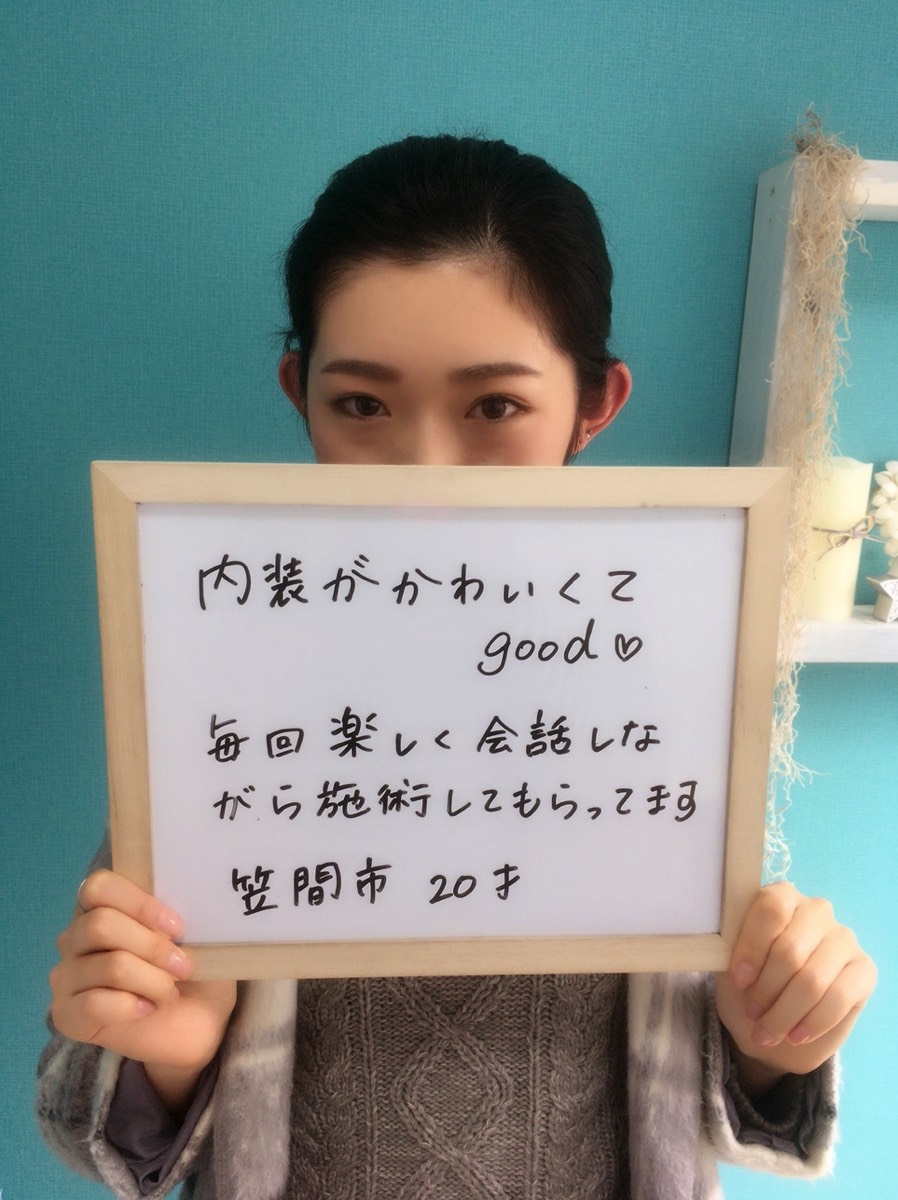 内装がかわいくて
good♡
毎回楽しく会話しな
がら施術してもらってます
笠間市 20才